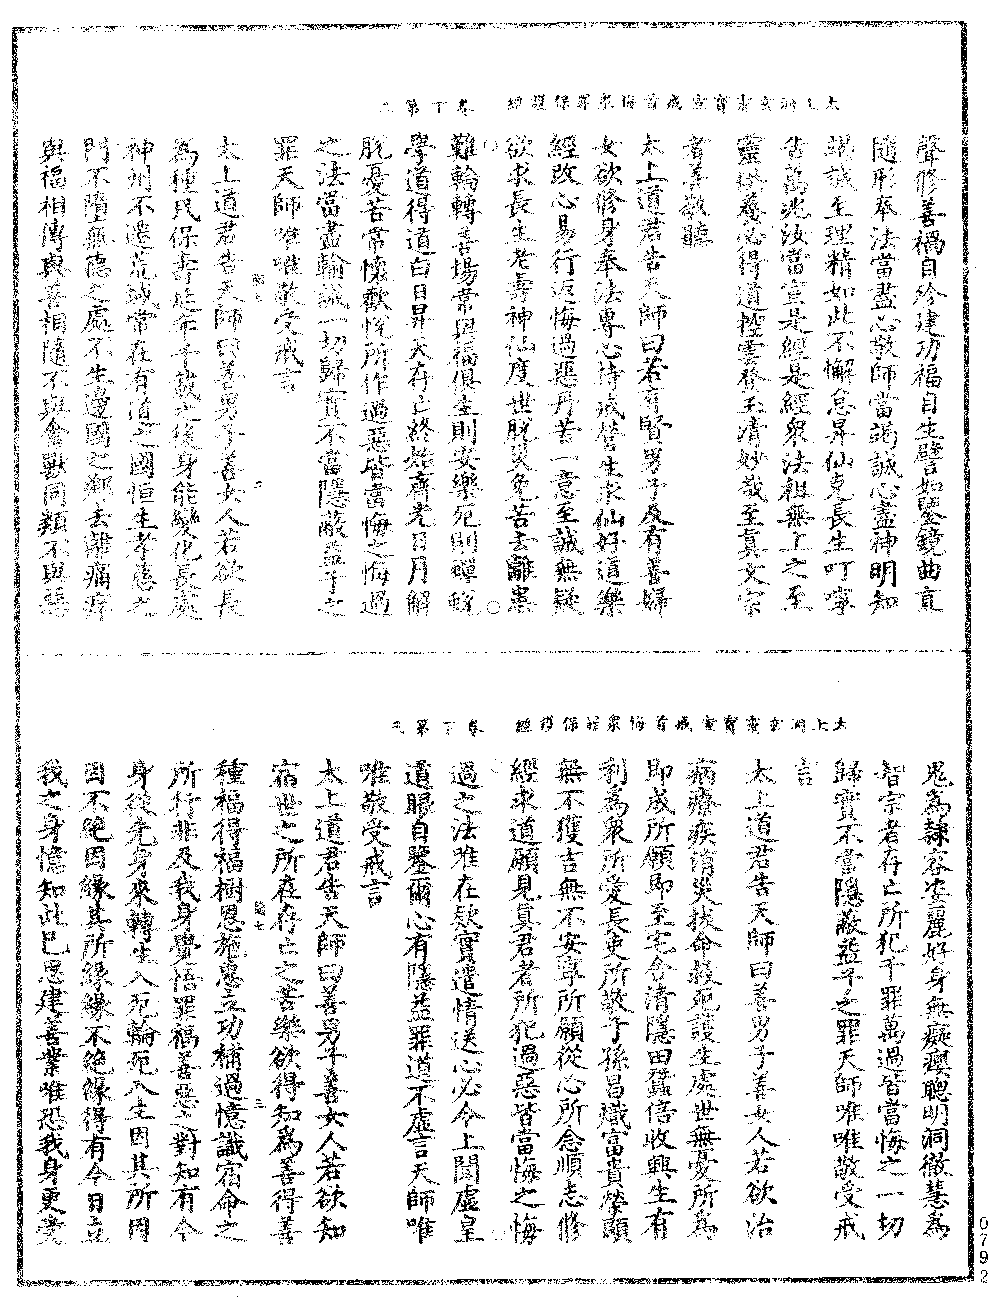 太上洞玄靈寶宣戒首悔衆罪保護經　卷下第二
聲修善禍自殄建功福自生譬如鑒鏡曲直
隨形奉法當盡心敬師當謁誠心盡神明知
竭誠至理精如此不懈怠昇仙克長生叮嚀
告萬兆汝當宣是經是經衆法祖無上之至
靈恭奉必得道控雲登玉清妙哉至真文宗
者善敬聽
太上道君告天師曰若有賢男子及有善婦
女欲修身奉法專心持戒營生求仙好道樂
經改心易行返悔過惡丹苦一意至誠無疑
欲求長生老壽神仙度世脫災免苦去離患
難輪轉善場常與福俱生則安樂死則蟬蛻
學道得道白日昇天存亡終始齊光日月解
脫憂苦常懷歡悅所作過惡皆當悔之悔過
之法當盡輸誠一切歸實不當隱蔽益子之
罪天師唯唯敬受戒言
太上道君告天師曰善男子善女人若欲長
為種民保壽延年千歲之後身能變化長處
神州不遷荒域常在有道之國恒生孝慈之
門不墮無德之處不生邊國之鄉去離痛痒
與福相傳與善相隨不與禽獸同類不與惡
太上洞玄靈寶宣戒首悔衆罪保護經　卷下第三
鬼為隸容姿麗好身無癡瘿聰明洞徹慧為
智宗者存亡所犯千罪萬過皆當悔之一切
歸實不當隱蔽益子之罪天師唯唯敬受戒
言
太上道君告天師曰善男子善女人若欲治
病療疾消災拔命救死護生處世無憂所為
即成所願即至宅舍清隱田蠶倍收興生有
利為衆所愛長吏所敬子孫昌熾富貴榮顯
無不獲吉無不安寧所願從心所念順志修
經求道願見真君者所犯過惡皆當悔之悔
過之法唯在款實遣情送心必令上聞虛皇
道眼自鑒爾心有隱益罪道不虛言天師唯
唯敬受戒言
太上道君告天師曰善男子善女人若欲知
宿世之所在存亡之苦樂欲得知為善得善
種福得福樹恩施惠立功補過憶識宿命之
所行非及我身覺悟罪福善惡之對知有今
身從先身來轉生入死輪死入生因其所因
因不絕因緣其所緣緣不絕緣得有今日立
我之身憶知此已思建善業唯恐我身更受
0792